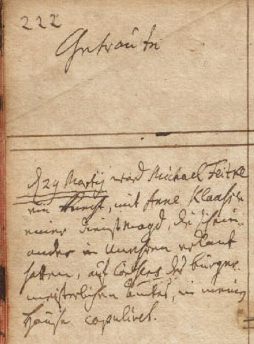 222
Getraute
d. 29 Martij ward Michael Feitke
ein Knecht, mit Anne Klaassen
einer Dienstmagd, die sich ein
ander in Unehren erkant
hatten, auf Consens des bürger
meisterlichen Amtes, in meinem
Hause copuliret.